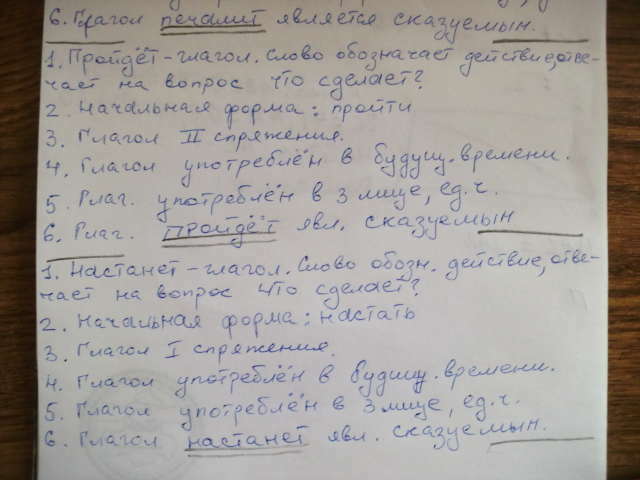 6. Глагол печалит является сказуемым.
1. Пройдёт - глагол. Слово обозначает действие, отве-
чает на вопрос что сделает?
2. Начальная форма: пройти
3. Глагол II спряжения.
4. Глагол употреблён в будущ. времени.
5. Глаг. употреблён в 3 лице, ед. ч.
6. Глаг. пройдёт явл. сказуемым
1. Настанет - глагол. Слово обозн. действие, отве-
чает на вопрос что сделает?
2. Начальная форма: настать
3. Глагол I спряжения.
4. Глагол употреблён в будущ. времени.
5. Глагол употреблён в 3 лице, ед. ч.
6. Глагол настанет явл. сказуемым.